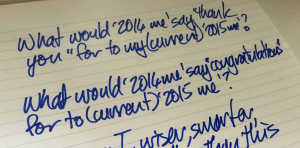 What would '2016 me' say "thank
you" for to my (current) '2015 me'?
What would '2016 me' say "congratulations"
for to (current) '2015 me'?
I, wiser, smarter,
this